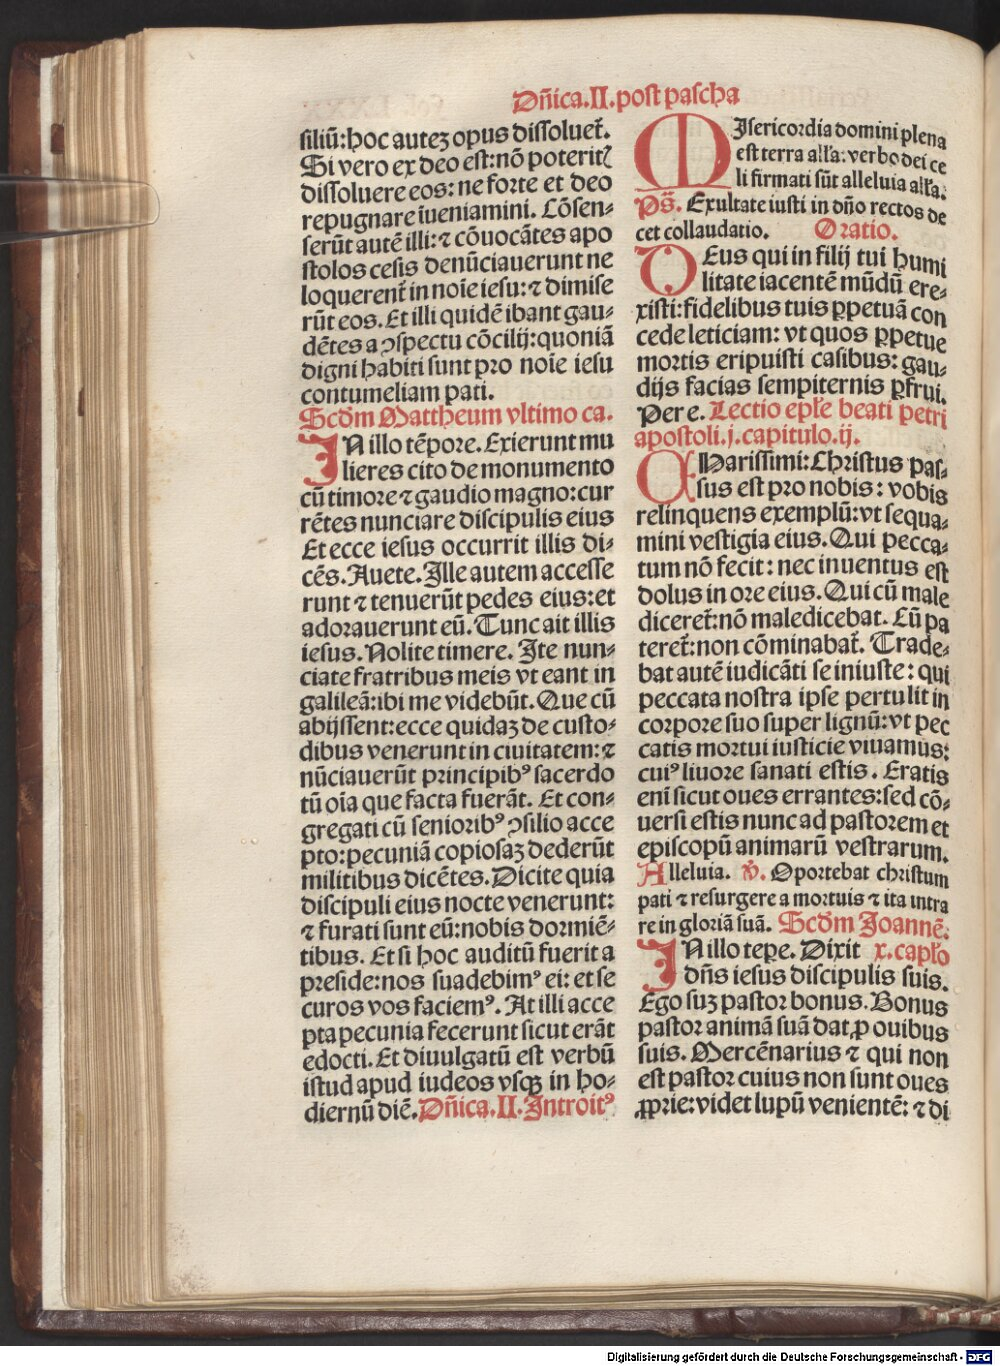 Dn̄ica.II.post pascha
siliū:hoc autēꝫ opus dissoluet᷑.
Si vero ex deo est:nō poteritꝭ
dissoluere eos:ne forte et deo
repugnare īueniamini. Cōsen-
serūt autē illi:⁊ cōuocātes apo
stolos cesis denūciauerunt ne
loquerent᷑ in noīe iesu:⁊ dimise
rūt eos.Et illi quidē ibant gau-
dētes a ꝯspectu cōcilij:quoniā
digni habiti sunt pro noīe iesu
contumeliam pati.
Scd̄m Mattheum vltimo ca.
IN illo tēpore.Exierunt mu
lieres cito de monumento
cū timore ⁊ gaudio magno:cur
rētes nunciare discipulis eius
Et ecce iesus occurrit illis di-
cēs.Auete.Ille autem accesse
runt ⁊ tenuerūt pedes eius:et
adorauerunt eū.Tunc ait illis
iesus.Nolite timere. Ite nun-
ciate fratribus meis vt eant in
galileā:ibi me videbūt.Que cū
abijssent:ecce quidaꝫ de custo-
dibus venerunt in ciuitatem:⁊
nūciauerūt principibꝰ sacerdo
tū oīa que facta fuerāt. Et con-
gregati cū senioribꝰ ꝯsilio acce
pto:pecuniā copiosaꝫ dederūt
militibus dicētes.Dicite quia
discipuli eius nocte venerunt:
⁊ furati sunt eū:nobis dormiē-
tibus. Et si hoc auditū fuerit a
preside:nos suadebimꝰ ei: et se
curos vos faciemꝰ. At illi acce
pta pecunia fecerunt sicut erāt
edocti.Et diuulgatū est verbū
istud apud iudeos vsqꝫ in ho-
diernū diē.Dn̄ica.II.Introitꝰ
MIsericordia domini plena
est terra alľa:verbo dei ce
li firmati sūt alleluia alľa.
Ps̄. Exultate iusti in dn̄o rectos de
cet collaudatio. Oratio.
DEus qui in filij tui humi
litate iacentē mūdū ere-
xisti:fidelibus tuis ꝑpetuā con
cede leticiam: vt quos ꝑpetue
mortis eripuisti casibus: gau-
dijs facias sempiternis ꝑfrui.
Per e. Lectio epľe beati petri
apostoli.j.capitulo.ij.
CHarissimi:Christus pas-
sus est pro nobis: vobis
relinquens exemplū:vt sequa-
mini vestigia eius.Qui pecca-
tum nō fecit: nec inuentus est
dolus in ore eius.Qui cū male
diceret᷑:nō maledicebat. Cū pa
teret᷑:non cōminabat᷑. Trade-
bat autē iudicāti se iniuste: qui
peccata nostra ipse pertulit in
corpore suo super lignū:vt pec
catis mortui iusticie viuamus:
cuiꝰ liuore sanati estis. Eratis
enī sicut oues errantes:sed cō-
uersi estis nunc ad pastorem et
episcopū animarū vestrarum.
Alleluia. ℣. Oportebat christum
pati ⁊ resurgere a mortuis ⁊ ita intra
re in gloriā suā. Scd̄m Joannē.
IN illo tēpe. Dixit x.capľo
dn̄s iesus discipulis suis.
Ego suꝫ pastor bonus.Bonus
pastor animā suā dat ꝓ ouibus
suis. Mercēnarius ⁊ qui non
est pastor cuius non sunt oues
ꝓprie:videt lupū venientē: ⁊ di
Digitalisierung gefördert durch die Deutsche Forschungsgemeinschaft - DFG